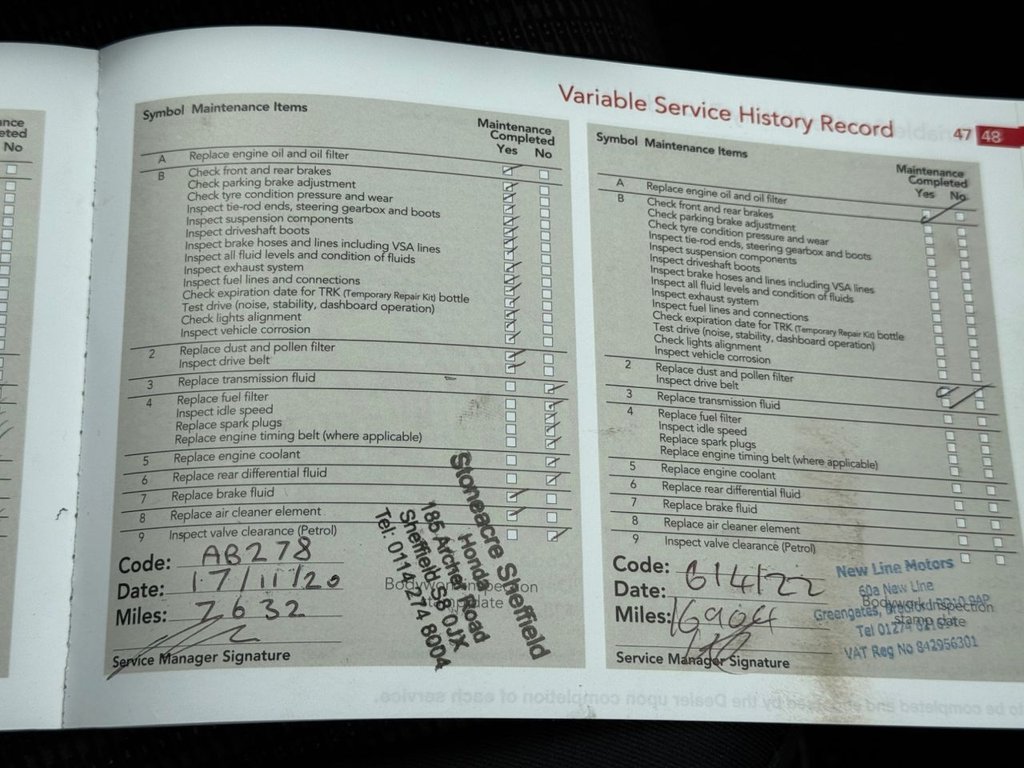 Variable Service History Record 47 48
nance
eted
No
Symbol Maintenance Items
Maintenance
Completed
Yes No
A Replace engine oil and oil filter
B Check front and rear brakes
Check parking brake adjustment
Check tyre condition pressure and wear
Inspect tie-rod ends, steering gearbox and boots
Inspect suspension components
Inspect driveshaft boots
Inspect brake hoses and lines including VSA lines
Inspect all fluid levels and condition of fluids
Inspect exhaust system
Inspect fuel lines and connections
Check expiration date for TRK (Temporary Repair Kit) bottle
Test drive (noise, stability, dashboard operation)
Check lights alignment
Inspect vehicle corrosion
2 Replace dust and pollen filter
Inspect drive belt
3 Replace transmission fluid
4 Replace fuel filter
Inspect idle speed
Replace spark plugs
Replace engine timing belt (where applicable)
5 Replace engine coolant
6 Replace rear differential fluid
7 Replace brake fluid
8 Replace air cleaner element
9 Inspect valve clearance (Petrol)
Code: AB278
Date: 17/11/20
Miles: 7632
Service Manager Signature
Stoneacre Sheffield
Honda
185 Archer Road
Sheffield S8 0JX
Tel: 0114 274 8004
Symbol Maintenance Items
Maintenance
Completed
Yes No
A Replace engine oil and oil filter
B Check front and rear brakes
Check parking brake adjustment
Check tyre condition pressure and wear
Inspect tie-rod ends, steering gearbox and boots
Inspect suspension components
Inspect driveshaft boots
Inspect brake hoses and lines including VSA lines
Inspect all fluid levels and condition of fluids
Inspect exhaust system
Inspect fuel lines and connections
Check expiration date for TRK (Temporary Repair Kit) bottle
Test drive (noise, stability, dashboard operation)
Check lights alignment
Inspect vehicle corrosion
2 Replace dust and pollen filter
Inspect drive belt
3 Replace transmission fluid
4 Replace fuel filter
Inspect idle speed
Replace spark plugs
Replace engine timing belt (where applicable)
5 Replace engine coolant
6 Replace rear differential fluid
7 Replace brake fluid
8 Replace air cleaner element
9 Inspect valve clearance (Petrol)
Code:
Date: 6/4/22
Miles: 16904
Service Manager Signature
New Line Motors
60a New Line
Greengates,
Bodywork Inspection
stamp date
Tel 01274
VAT Reg No 842956301